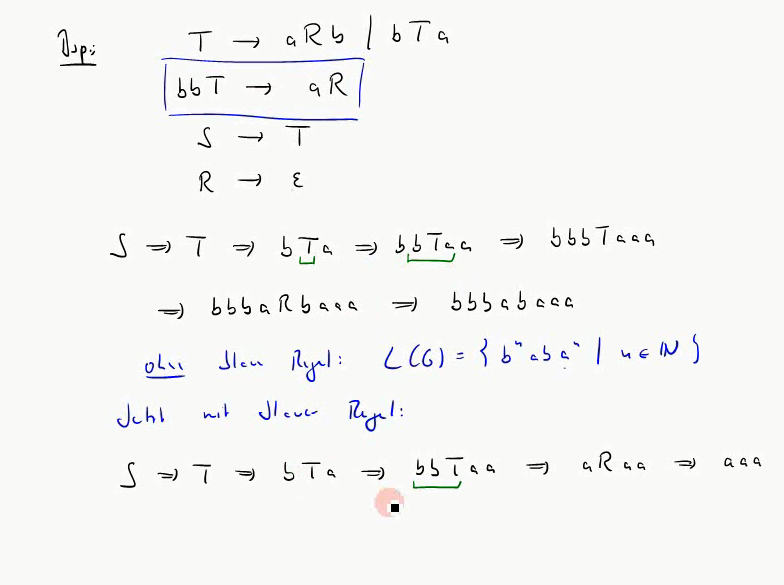 Bsp: T → aRb | bTa
bbT → aR
S → T
R → ε
S ⇒ T ⇒ bTa ⇒ bbTaa ⇒ bbbTaaa
⇒ bbbaRbaaa ⇒ bbbabaaa
ohne blaue Regel: L(G) = { bⁿabaⁿ | n ∈ ℕ }
Jetzt mit blauer Regel:
S ⇒ T ⇒ bTa ⇒ bbTaa ⇒ aRaa ⇒ aaa